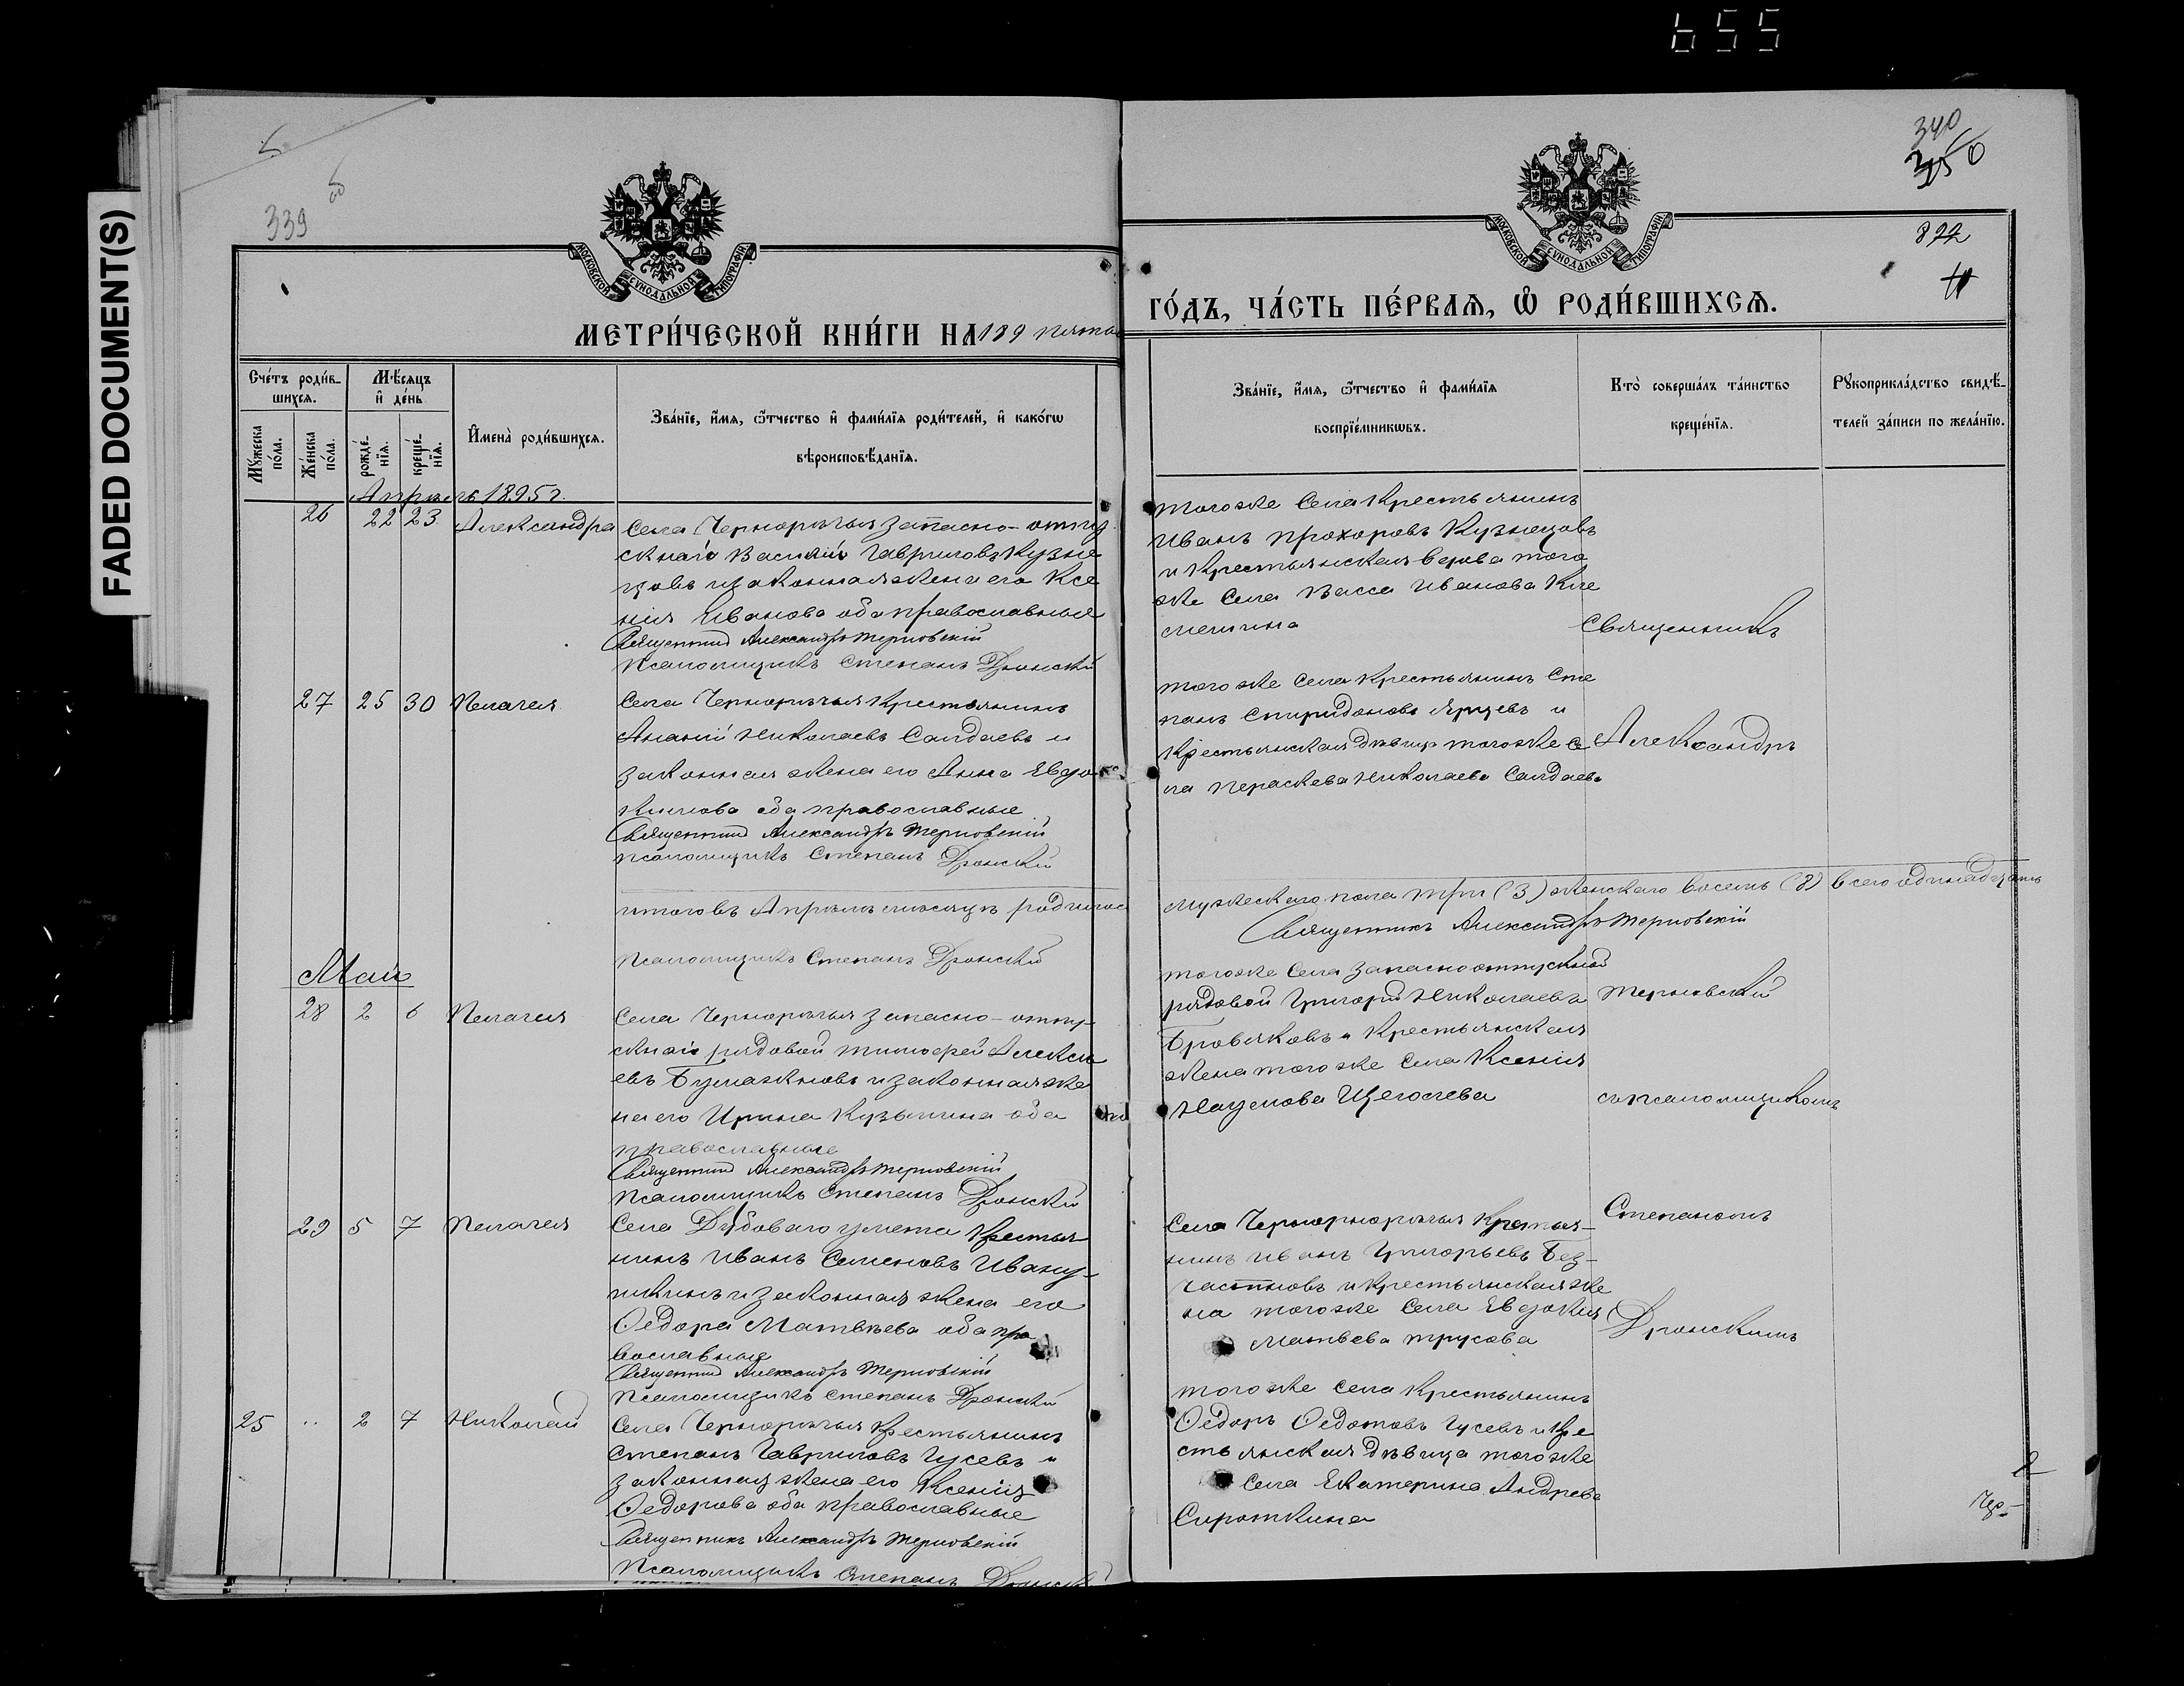 655
FADED DOCUMENT(S)
339
340
350
822
МОСКОВСКОЙ СУНОДАЛЬНОЙ ТИПОГРАФІИ
МОСКОВСКОЙ СУНОДАЛЬНОЙ ТИПОГРАФІИ
МЕТРИ́ЧЕСКОЙ КНИ́ГИ НА 189 пято
ГО́ДЪ, ЧА́СТЬ ПЕ́РВАЯ, Ѽ РОДИ́ВШИХСЯ.
Сче́тъ роди́в-
шихся.
Мѣ́сяцъ
и҆ де́нь
Му́жеска
по́ла.
Же́нска
по́ла.
рожде́-
нїя.
креще́-
нїя.
И҆мена̀ роди́вшихся.
Зва́нїе, и҆́мя, ѻ҆́тчество и҆ фами́лїя роди́телей, и҆ како́гѡ
вѣроисповѣ́данїя.
Зва́нїе, и҆́мя, ѻ҆́тчество и҆ фами́лїя
воспрїе́мникѡвъ.
Кто̀ соверша́лъ та́инство
креще́нїя.
Рꙋкоприкла́дство свидѣ́-
телей за́писи по жела́нїю.
Апрель 1895 г.
26 22 23 Александра
Села Чернорѣчья запасно-отпу
скнаго Василій Гавриловъ Кузне
цовъ и законная жена его Ксе
нія Иванова оба православные
Священникъ Александръ Терновскій
Псаломщикъ Степанъ Дронскій
тогоже Села Крестьянинъ
Иванъ Прохоровъ Кузнецовъ
и Крестьянская вдова того
же Села Васса Иванова Кле
менина
Священникъ
27 25 30 Пелагея
Села Чернорѣчья Крестьянинъ
Ананій Николаевъ Салдаевъ и
законная жена его Анна Евдо
кимова оба православные
Священникъ Александръ Терновскій
псаломщикъ Степанъ Дронскій
того же Села Крестьянинъ Сте
панъ Спиридоновъ Ярцевъ и
Крестьянская дѣвица тогоже Се
ла Пераскева Николаева Салдаева
Александръ
итого въ Апрѣлѣ мѣсяцѣ родилось
мужескаго пола три (3) женскаго восемь (8) всего одинадцать
Священникъ Александръ Терновскій
Псаломщикъ Степанъ Дронскій
Май
28 2 6 Пелагея
Села Чернорѣчья запасно-отпу-
скной рядовой Тимофей Алексе
евъ Бумажновъ и законная же
на его Ирина Кузьмина оба
православные
Священникъ Александръ Терновскій
Псаломщикъ Степанъ Дронскій
тогоже Села запасноотпускной
рядовой Григорій Николаевъ
Бровяковъ и Крестьянская
жена того же Села Ксенія
Наумова Щеголева
Терновскій
съ псаломщикомъ
29 5 7 Пелагея
Села Дубоваго умета Крестья
нинъ Иванъ Семеновъ Ивану-
шкинъ и законная жена его
Ѳедора Матвѣева оба пра
вославные
Священникъ Александръ Терновскій
Псаломщикъ Степанъ Дронскій
Села Чернорнорѣчья Кретья-
нинъ Иванъ Григорьевъ Без-
частновъ и крестьянская же
на тогоже Села Евдокія
Матвѣева Трусова
Степаномъ
Дронскимъ
25 .. 2 7 Николай
Села Чернорѣчья Крестьянинъ
Степанъ Гавриловъ Гусевъ и
законная жена его Ксенія
Ѳедорова оба православные
Священникъ Александръ Терновскій
Псаломщикъ Степанъ Дронскій
того же Села Крестьянинъ
Ѳедоръ Ѳедотовъ Гусевъ и Кре
стьянская дѣвица тогоже
Села Екатерина Андрева
Сироткина